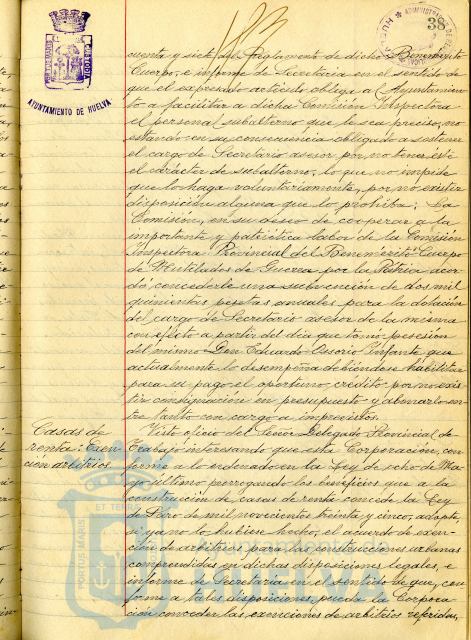 38
AYUNTAMIENTO DE HUELVA
cuenta y siete del Reglamento de dicho Benemérito
Cuerpo, e informe de Secretaría en el sentido de
que el expresado artículo obliga a l Ayuntamien
to a facilitar a dicha Comisión Inspectora
el personal subalterno que le sea preciso, no
estando en su consecuencia obligado a sostener
el cargo de Secretario asesor por no tener éste
el carácter de subalterno, lo que no impide
que lo haga voluntariamente, por no existir
disposición alguna que lo prohiba; La
Comisión, en su deseo de cooperar a la
importante y patriótica labor de la Comisión
Inspectora Provincial del Benemérito Cuerpo
de Mutilados de Guerra por la Patria acor
dó concederle una subvención de dos mil
quinientas pesetas anuales para la dotación
del cargo de Secretario asesor de la misma
con efecto a partir del día que tomó posesión
del mismo Don Eduardo Ossorio Infante que
actualmente lo desempeña debiéndose habilitar
para su pago el oportuno crédito por no exis
tir consignación en presupuesto y abonarlo en
tre tanto con cargo a imprevistos.
Casas de
renta: Exen
ción arbitrios.
Visto oficio del Señor Delegado Provincial de
Trabajo interesando que esta Corporación, con
forme a lo ordenado en la Ley de ocho de Ma
yo último prorrogando los beneficios que a la
construcción de casas de renta concede la Ley
de de mil novecientos treinta y cinco, adopte,
si ya no lo hubiese hecho, el acuerdo de exen
ción de arbitrios para las construcciones urbanas
comprendidas en dichas disposiciones legales, e
informe de Secretaría en el sentido de que, con
forme a tales disposiciones, pueda la Corpora
ción conceder las exenciones de arbitrios referidas,
PORTUS MARIS
ET TERRAE